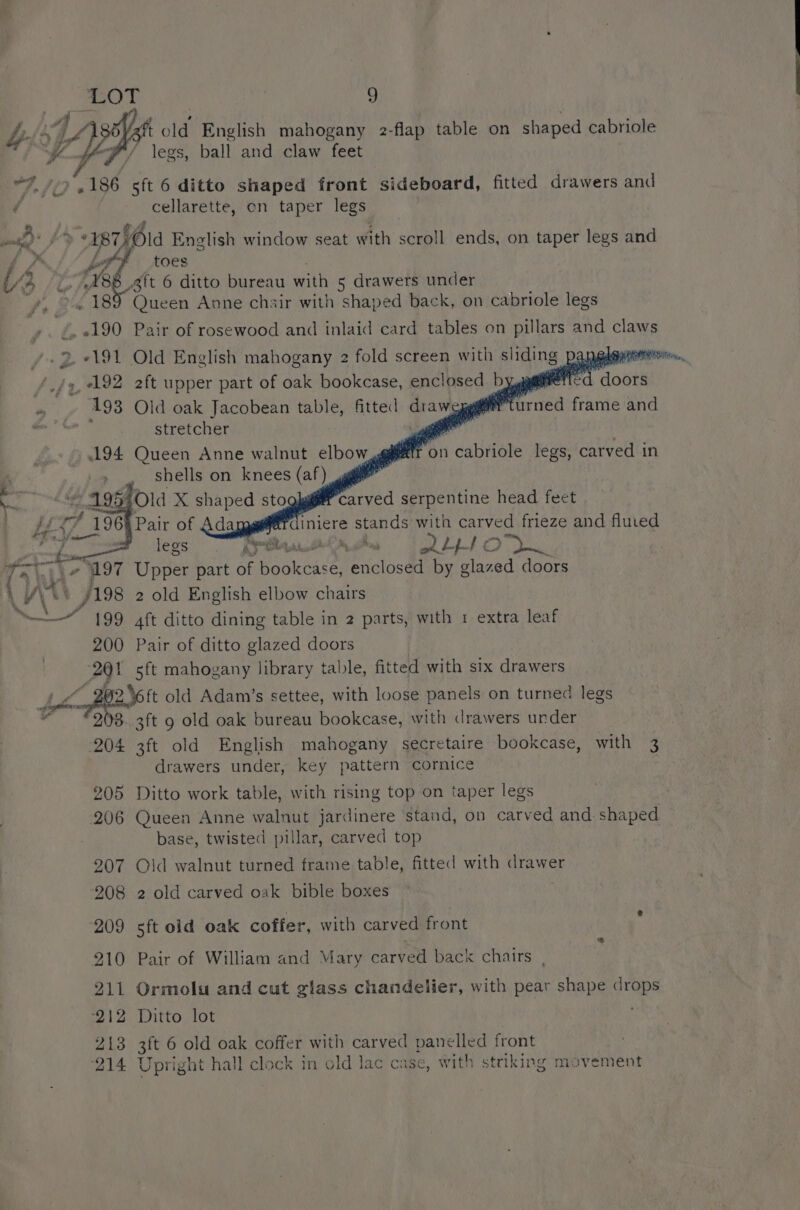 LOT 9
185 3ft old English mahogany 2-flap table on shaped cabriole
legs, ball and claw feet
186 5ft 6 ditto shaped front sideboard, fitted drawers and
cellarette, on taper legs
187 Old English window seat with scroll ends, on taper legs and
toes
188 3ft 6 ditto bureau with 5 drawers under
189 Queen Anne chair with shaped back, on cabriole legs
190 Pair of rosewood and inlaid card tables on pillars and claws
191 Old English mahogany 2 fold screen with sliding panels
192 2ft upper part of oak bookcase, enclosed by doors
193 Old oak Jacobean table, fitted drawer turned frame and
stretcher
194 Queen Anne walnut elbow on cabriole legs, carved in
shells on knees (af)
195 Old X shaped stool carved serpentine head feet
196 Pair of Adams jardiniere stands with carved frieze and fluted
legs
197 Upper part of bookcase, enclosed by glazed doors
198 2 old English elbow chairs
199 4ft ditto dining table in 2 parts, with 1 extra leaf
200 Pair of ditto glazed doors
201 5ft mahogany library table, fitted with six drawers
202 6ft old Adam's settee, with loose panels on turned legs
203 3ft 9 old oak bureau bookcase, with drawers under
204 3ft old English mahogany secretaire bookcase, with 3
drawers under, key pattern cornice
205 Ditto work table, with rising top on taper legs
206 Queen Anne walnut jardinere stand, on carved and shaped
base, twisted pillar, carved top
207 Old walnut turned frame table, fitted with drawer
208 2 old carved oak bible boxes
209 5ft old oak coffer, with carved front
210 Pair of William and Mary carved back chairs
211 Ormolu and cut glass chandelier, with pear shape drops
212 Ditto lot
213 3ft 6 old oak coffer with carved panelled front
214 Upright hall clock in old lac case, with striking movement